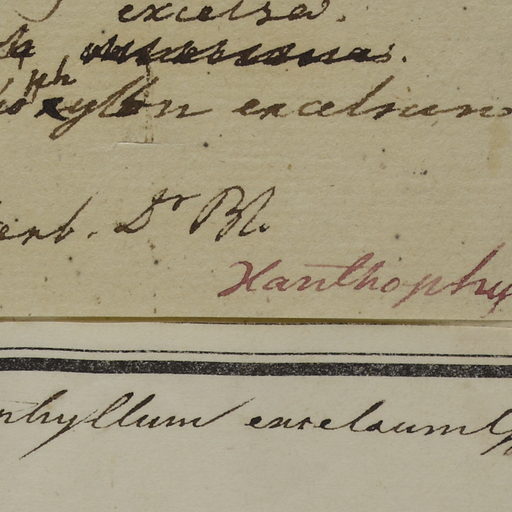 excelsa.
oxylon excelsum
ph
erb. Dr Bl.
Xanthophy
phyllum excelsum